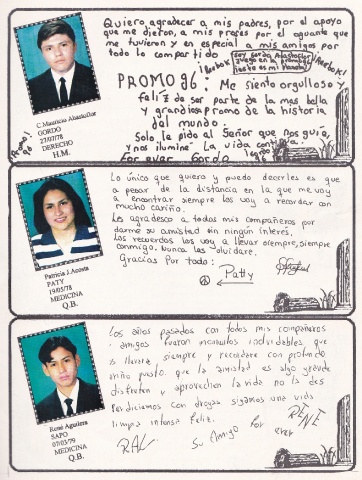 Quiero agradecer a mis padres, por el apoyo
que me dieron, a mis profes por el aguante que
me tuvieron y en especial a mis amigos por
todo lo compartido
soy gordo Abastoflor
Reebok!
Reebok!
PROMO 96: Me siento orgulloso y
feliz de ser parte de la mas bella
y grandiosa promo de la historia
del mundo.
Solo le pido al Señor que nos guie,
y nos ilumine. La vida continúa.
For ever Gordo
C. Mauricio Abastoflor
GORDO
22/07/78
DERECHO
H.M.
Promo 96
Lo único que quiero y puedo decirles es que
a pesar de la distancia en la que me voy
a encontrar siempre los voy a recordar con
mucho cariño.
Les agradesco a todos mis compañeros por
darme su amistad sin ningún interés.
Los recuerdos los voy a llevar siempre, siempre
conmigo. Nunca los olvidare.
Gracias Por todo:
Patty
Patricia J. Acosta
PATY
19/05/78
MEDICINA
Q.B.
Los años pasados con todos mis compañeros
amigos fueron momentos inolvidables que
llevare siempre y recordare con profundo
cariño puesto que la amistad es algo grande
disfruten y aprovechen la vida no la des
perdiciemos con drogas, sigamos una vida
limpia intensa feliz.
Su Amigo for ever
RENE
René Aguilera
SAPO
07/03/79
MEDICINA
Q.B.